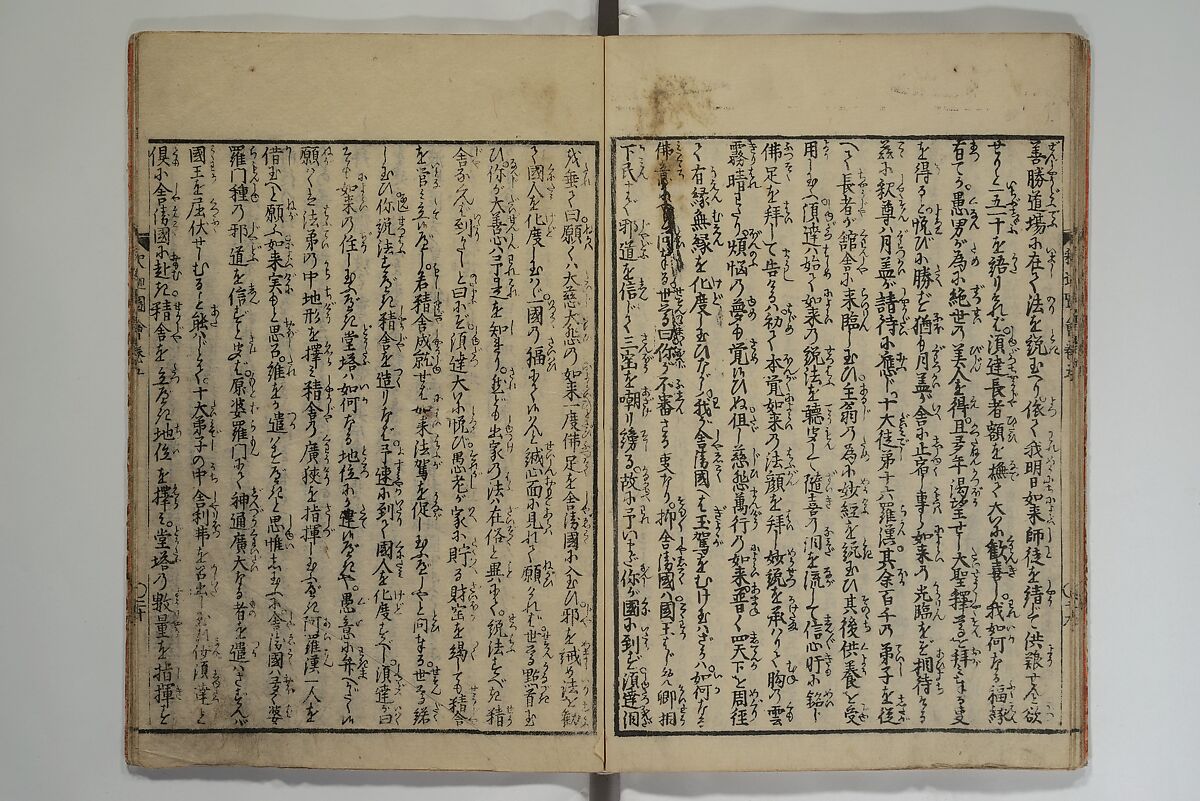 善勝道場に在て法を説玉へり依て我明日如来師徒を請して供養せんと欲
せりと一五一十を語りければ須達長者額を撫て大いに歓喜し我如何なる福縁
有てか愚男が為に絶世の美人を得且多年渇望せし大聖釈尊を拝する事
を得ると悦び小勝だ猶も月蓋が舎に止宿し専ら如来の光臨をぞ相待ける
茲に釈尊は月蓋が請待に應じ十大徒弟十六羅漢其余百千の弟子を従
へて長者が舘舎に来臨し玉ひ王翁の為に妙経を説玉ひ其後供養を受
用し玉へば須達は始て如来の説法を聽聞して隨喜の泪を流して信心肝に銘し
佛足を拜して告さく初て本覚如来の法顔を拜し妙説を承はりて胸の雲
霧晴わたり煩悩の夢も覚はひぬ但し慈悲萬行の如来普く四天下を周徑
く有縁無縁を化度し玉ひながら我が舎衛國へは玉駕をむけ玉はざるは如何なる
佛意に 問まゐる世尊曰你が不審さる事なり抑舎衛國は國王をはじめ卿相
下民まで邪道を信じて三宝を嘲り謗る故に予いまだ你が國に到らず須達泪
を垂て曰願くは大慈大悲の如来一度佛足を舎衛國に入玉ひ邪を誡め法を勧
て國人を化度し玉はゞ一國の福ならんと誠心面に見れて願ければ世尊點首玉
ひ你が大善心予是を知まり然ども出家の法は在俗と異にて説法すべき精
舎なくんば到りがたしと曰ふに須達大いに悦び愚老が家に貯る財宝を竭しても精舎
を営み立べし若精舎成就せば如来法駕を促し玉ふべしやと問まゐる世尊諾
し玉ひ你説法すべき精舎を造りなば予速に到りて國人を化度すべし須達曰
そも如来の住し玉ふべき堂塔は如何なる地位に建はべるべきや愚意に弁へがたし
願くは法弟の中地形を擇み精舎の廣狭を指揮し玉ふべき阿羅漢一人を
借玉へと願ふ如来実もと思召誰をか遣はすべきと思惟し玉ふに舎衛國は多く婆
羅門種の邪道を信ずと聞ば原婆羅門にて神通廣大なる者を遣はさずんば
國王を屈伏せしむる事能はじとて十大弟子の中舎利弗を召出し玉ひ你須達と
倶に舎衛國に赴き精舎を立べき地位を擇み堂塔の數量を指揮を